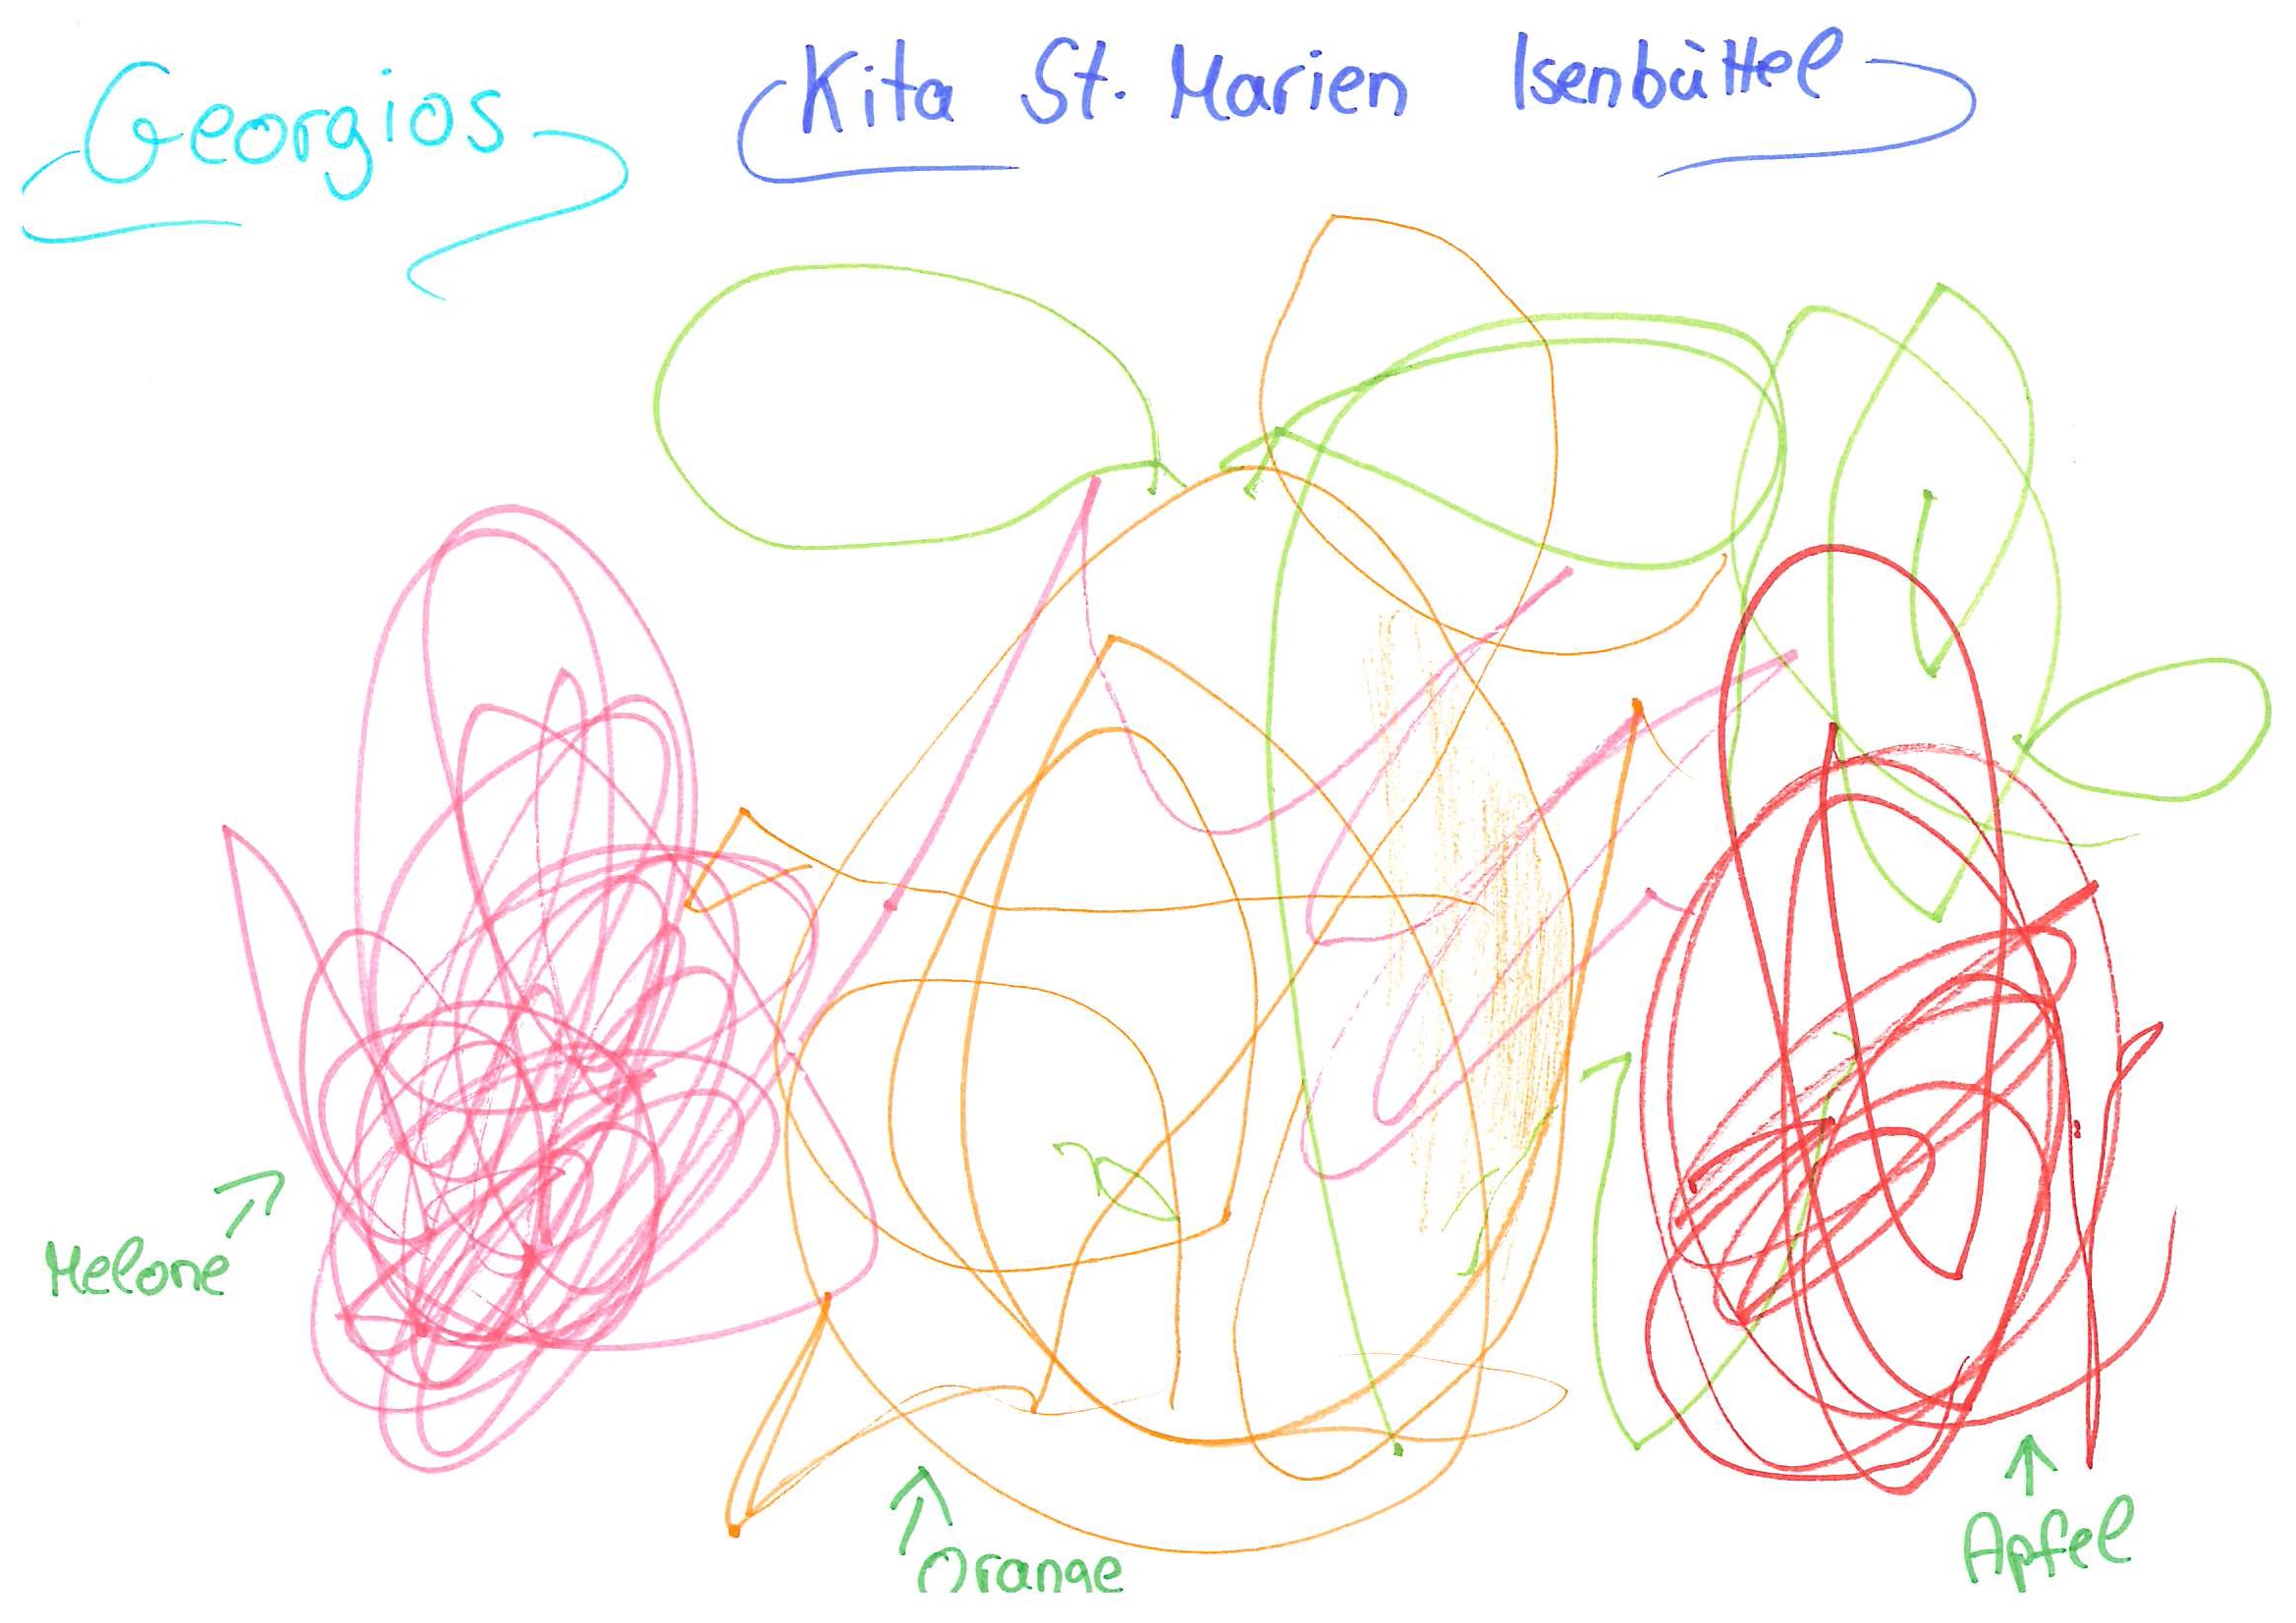 Georgios Kita St. Marien Isenbüttel
Melone
Orange
Apfel